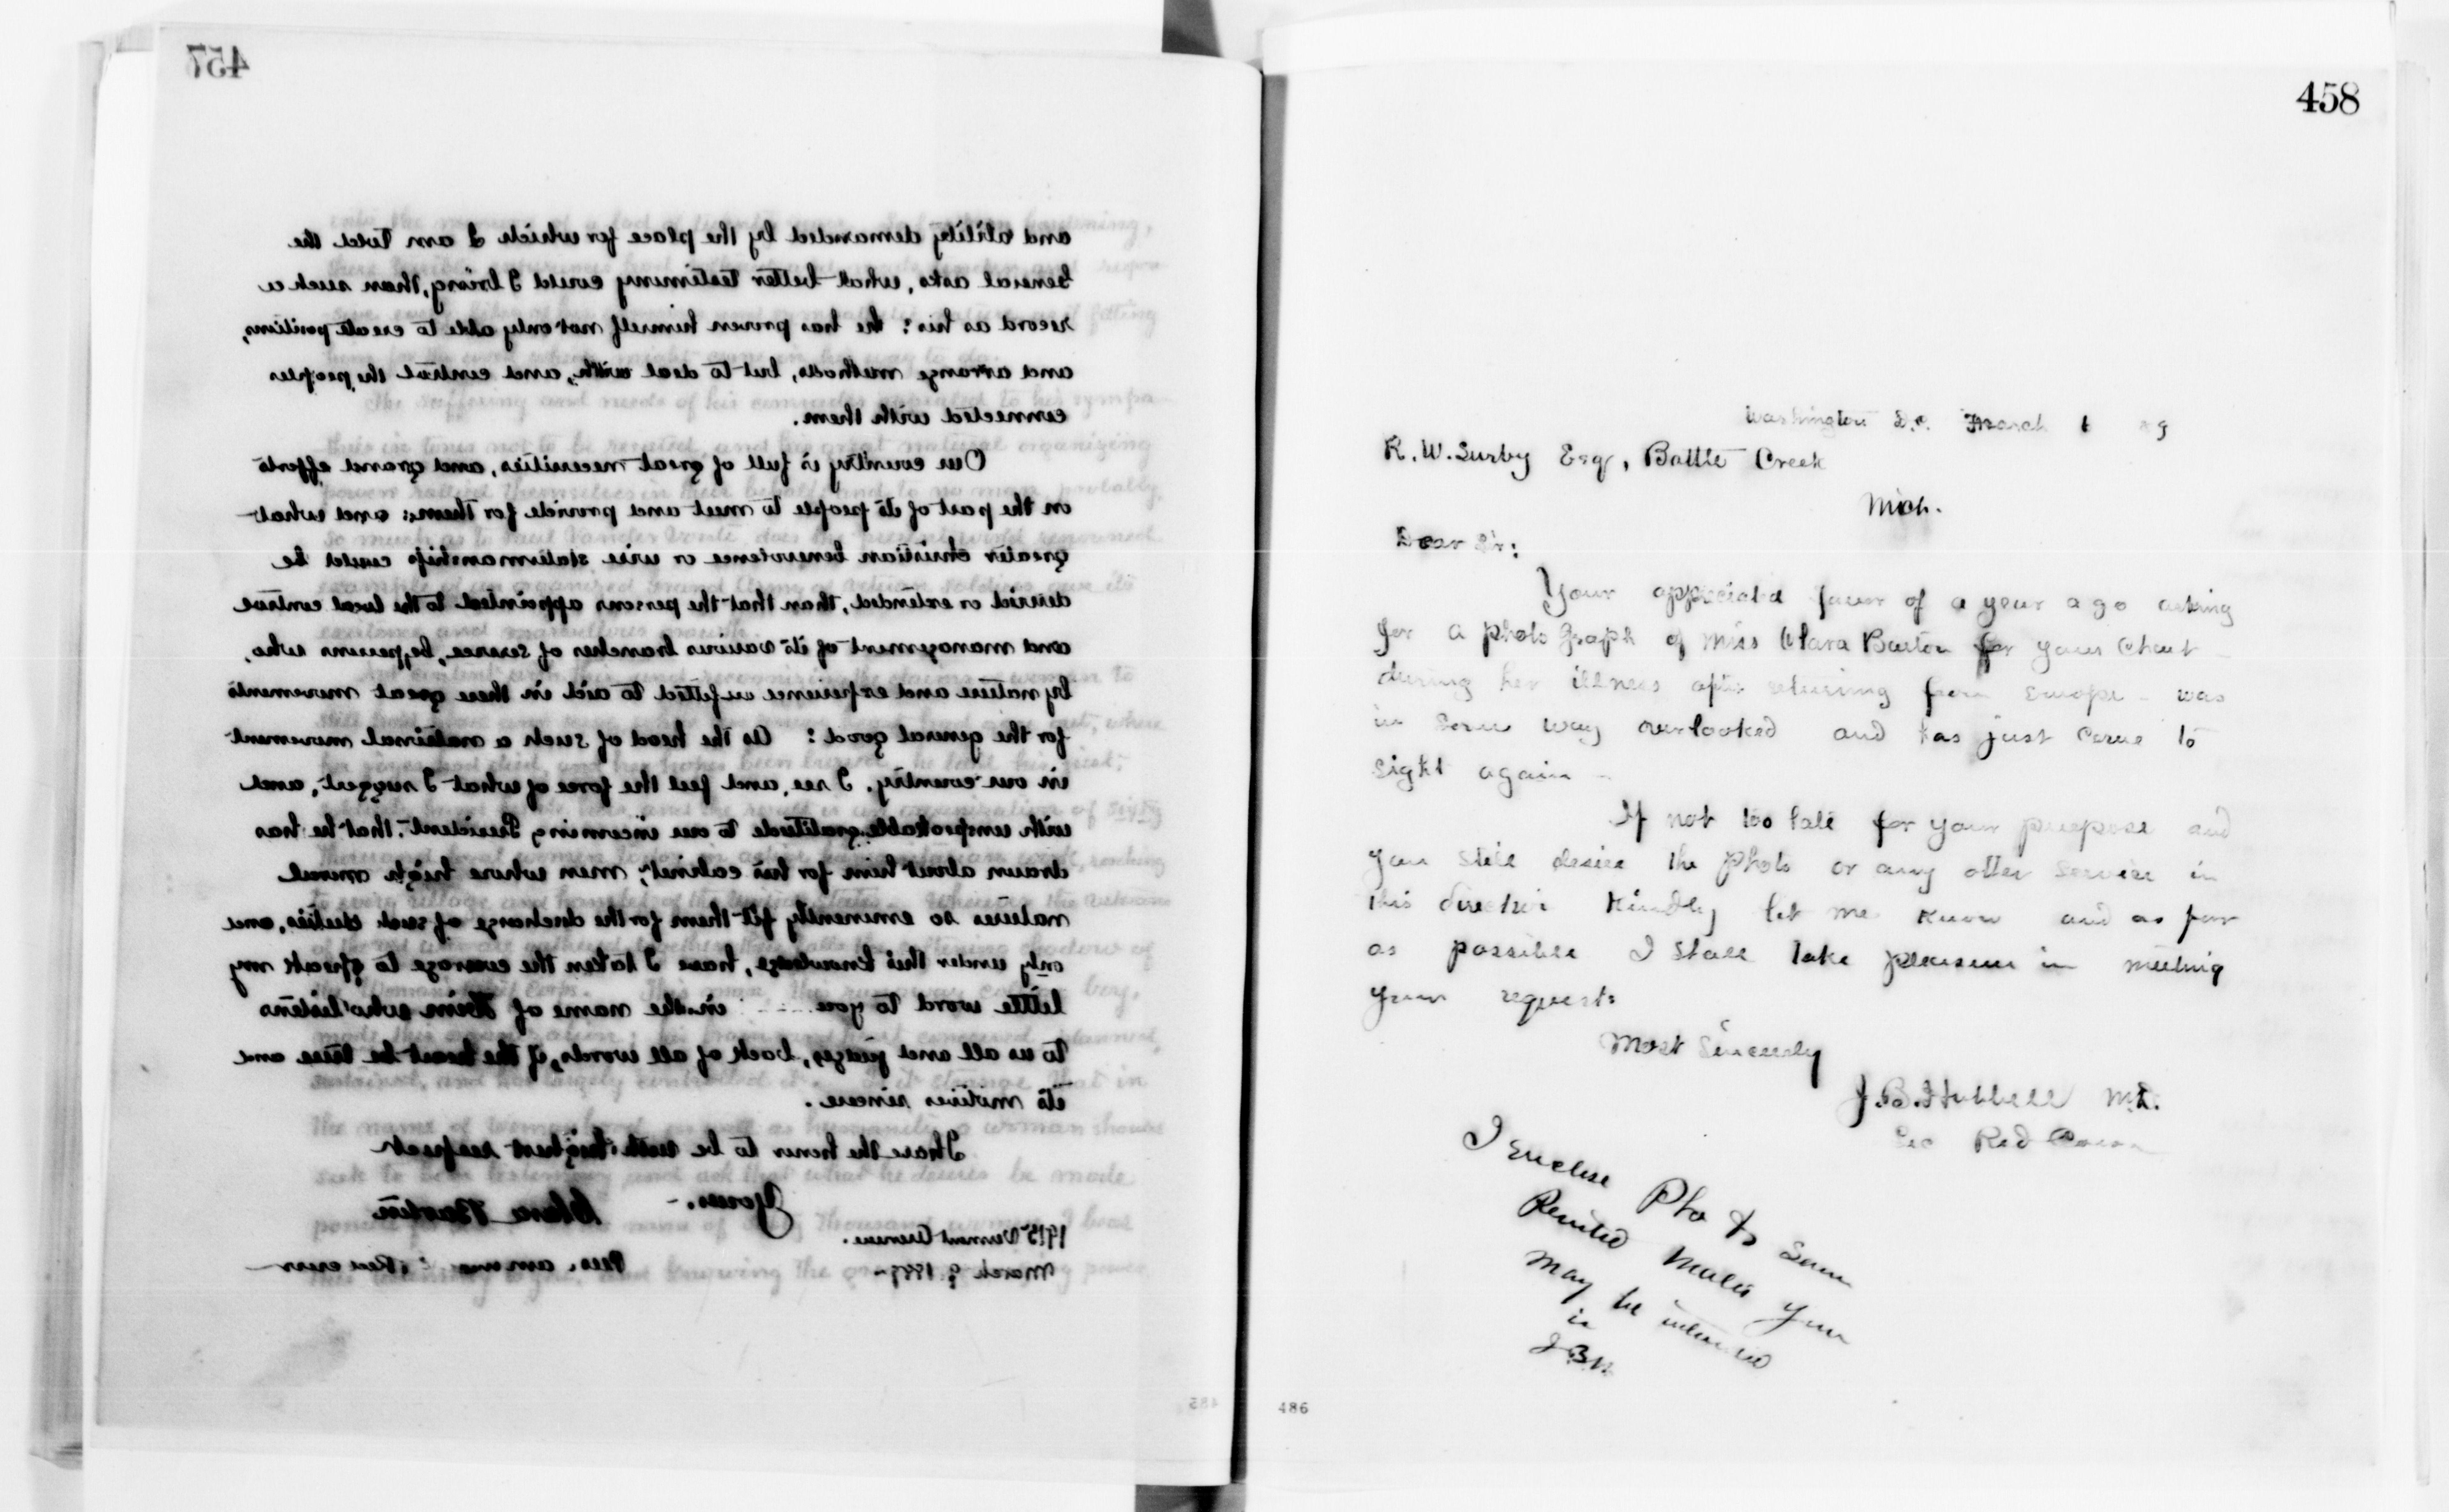 457
and ability demanded by the place for which I am told the
General asks, what better testimony could I bring, than such a
record as his: he has proven himself not only able to create positions,
and arrange methods, but to deal with, and control the peoples
connected with them.
Our country is full of great necessities, and grand efforts
on the part of its people to meet and provide for them: and what
greater christian benevolence or wise statesmanship could be
desired or extended, than that the persons appointed to the local control
and management of its various branches of service, be, persons who,
by nature and experience are fitted to aid in these great movements
for the general good? As the head of such a national movement
in our country. I see, and feel the force of what I suggest, and
with unspeakable gratitude to our incoming President, that he has
drawn about him for his cabinet, men whose high moral
natures so eminently fit them for the discharge of such duties, and
only under this knowledge, have I taken the courage to speak my
little word to you in the name of Him who listens
to us all and judges, back of all words, if the heart be true and
its motives sincere.
I have the honor to be with highest respect
Yours.-
Clara Barton
1915 Vermont Avenue.
March 9. 1889-
Red Cross
485
458
Washington D.C. March 6 89
R. W. Surby Esq, Battle Creek
Mich.
Dear Sir:
Your appreciated favor of a year ago asking
for a photo graph of Miss Clara Barton for your Chart
during her illness after returning from Europe - was
in some way overlooked and has just come to
sight again -
If not too late for your purpose and
you still desire the photo or any other service in
this direction kindly let me know and as far
as possible I shall take pleasure in meeting
your requests
Most Sincerely
J. B. Hubbell M.D.
Red Cross
I enclose Photo Some
Printed Matter you
may be interested
in
J.B.H.
486